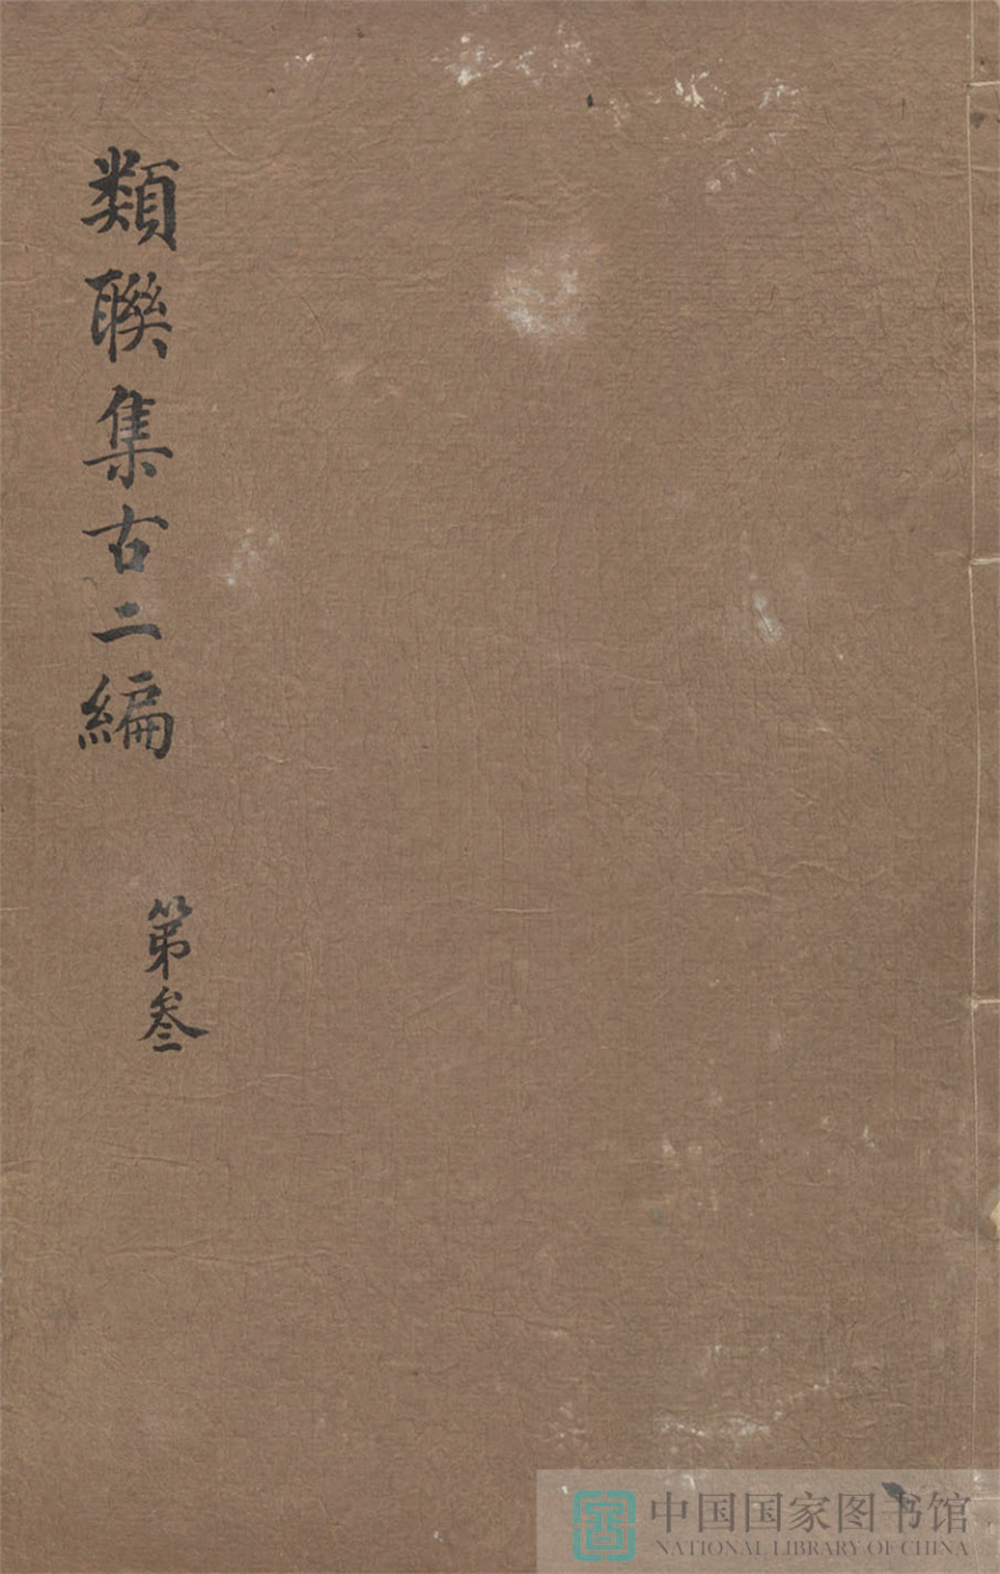 類聮集古二編
第叁
中国国家图书馆
NATIONAL LIBRARY OF CHINA